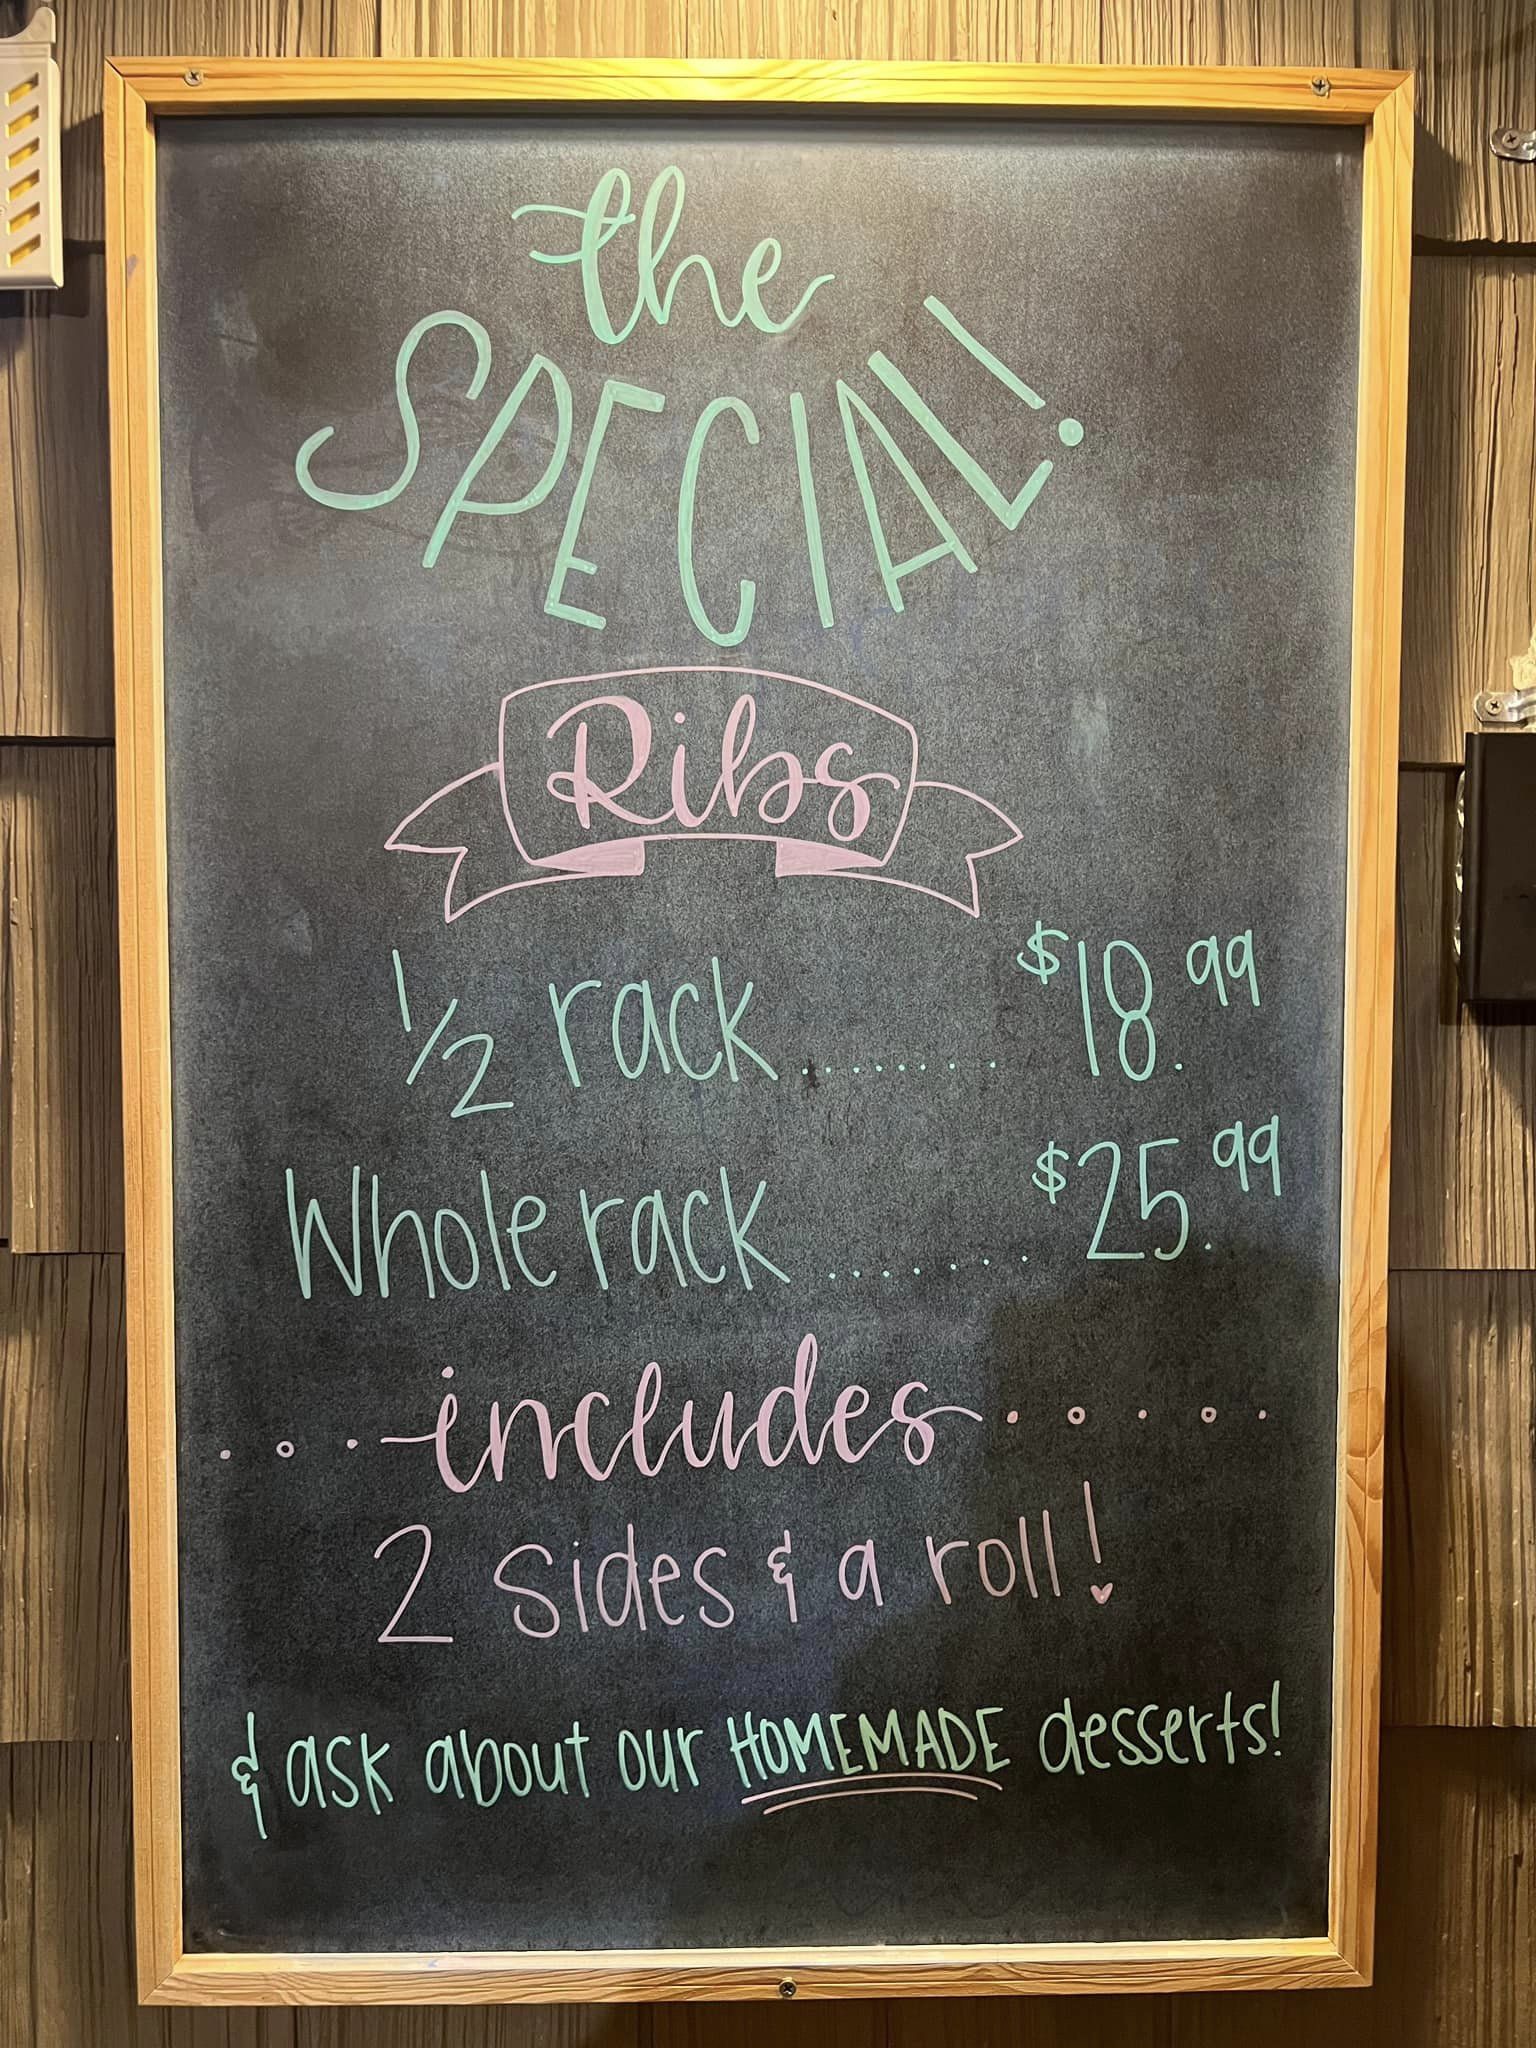 the
SPECIAL!
Ribs
1/2 rack ......... $18.99
Whole rack ....... $25.99
includes
2 sides & a roll!
& ask about our HOMEMADE desserts!